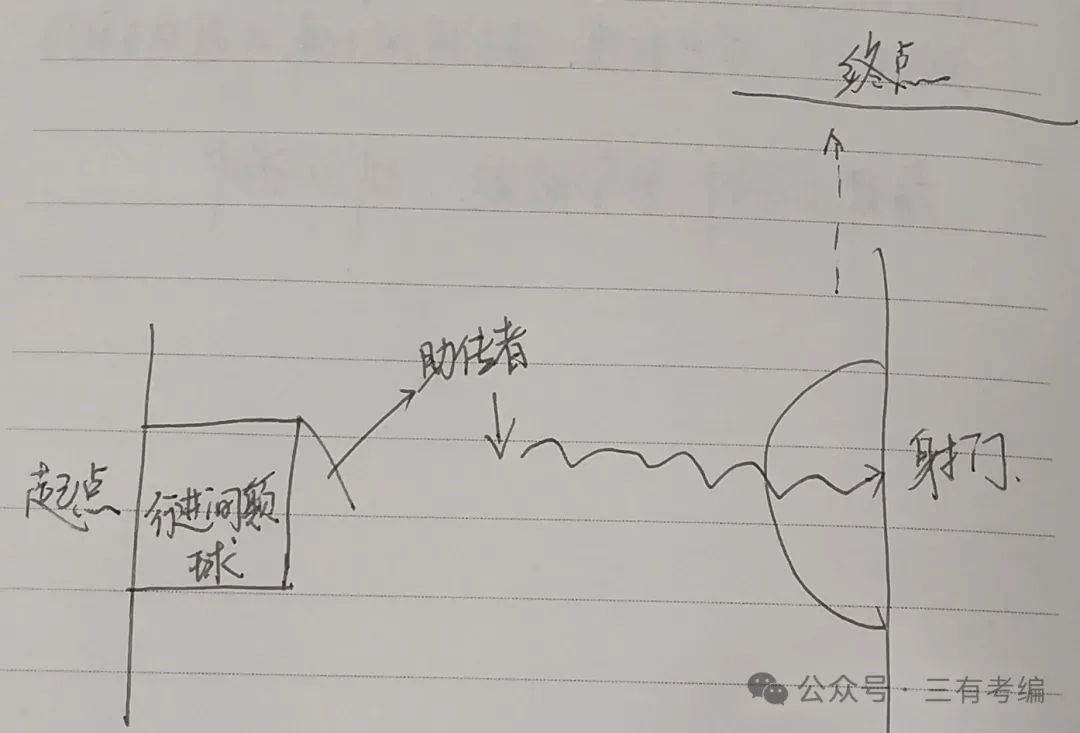 终点
助传者
起点
行进间颠
球
射门.
公众号·三有考编